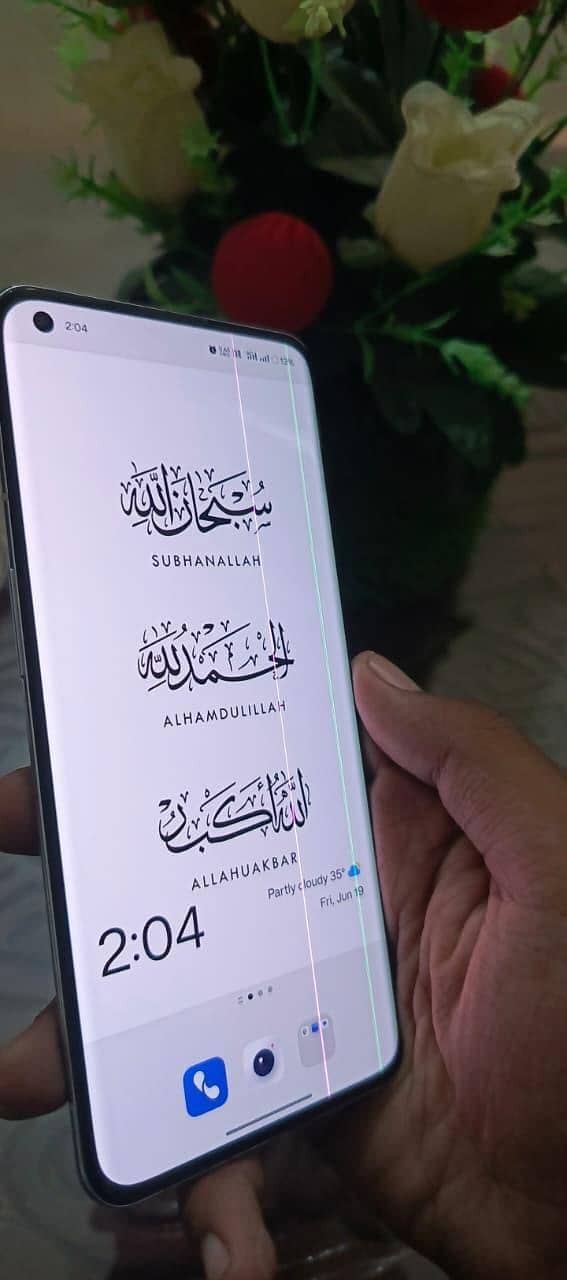 2:04
سُبْحَانَ اللَّهِ
SUBHANALLAH
الْحَمْدُ لِلَّهِ
ALHAMDULILLAH
اللَّهُ أَكْبَرُ
ALLAHUAKBAR
Partly cloudy 35°
Fri, Jun 19
2:04